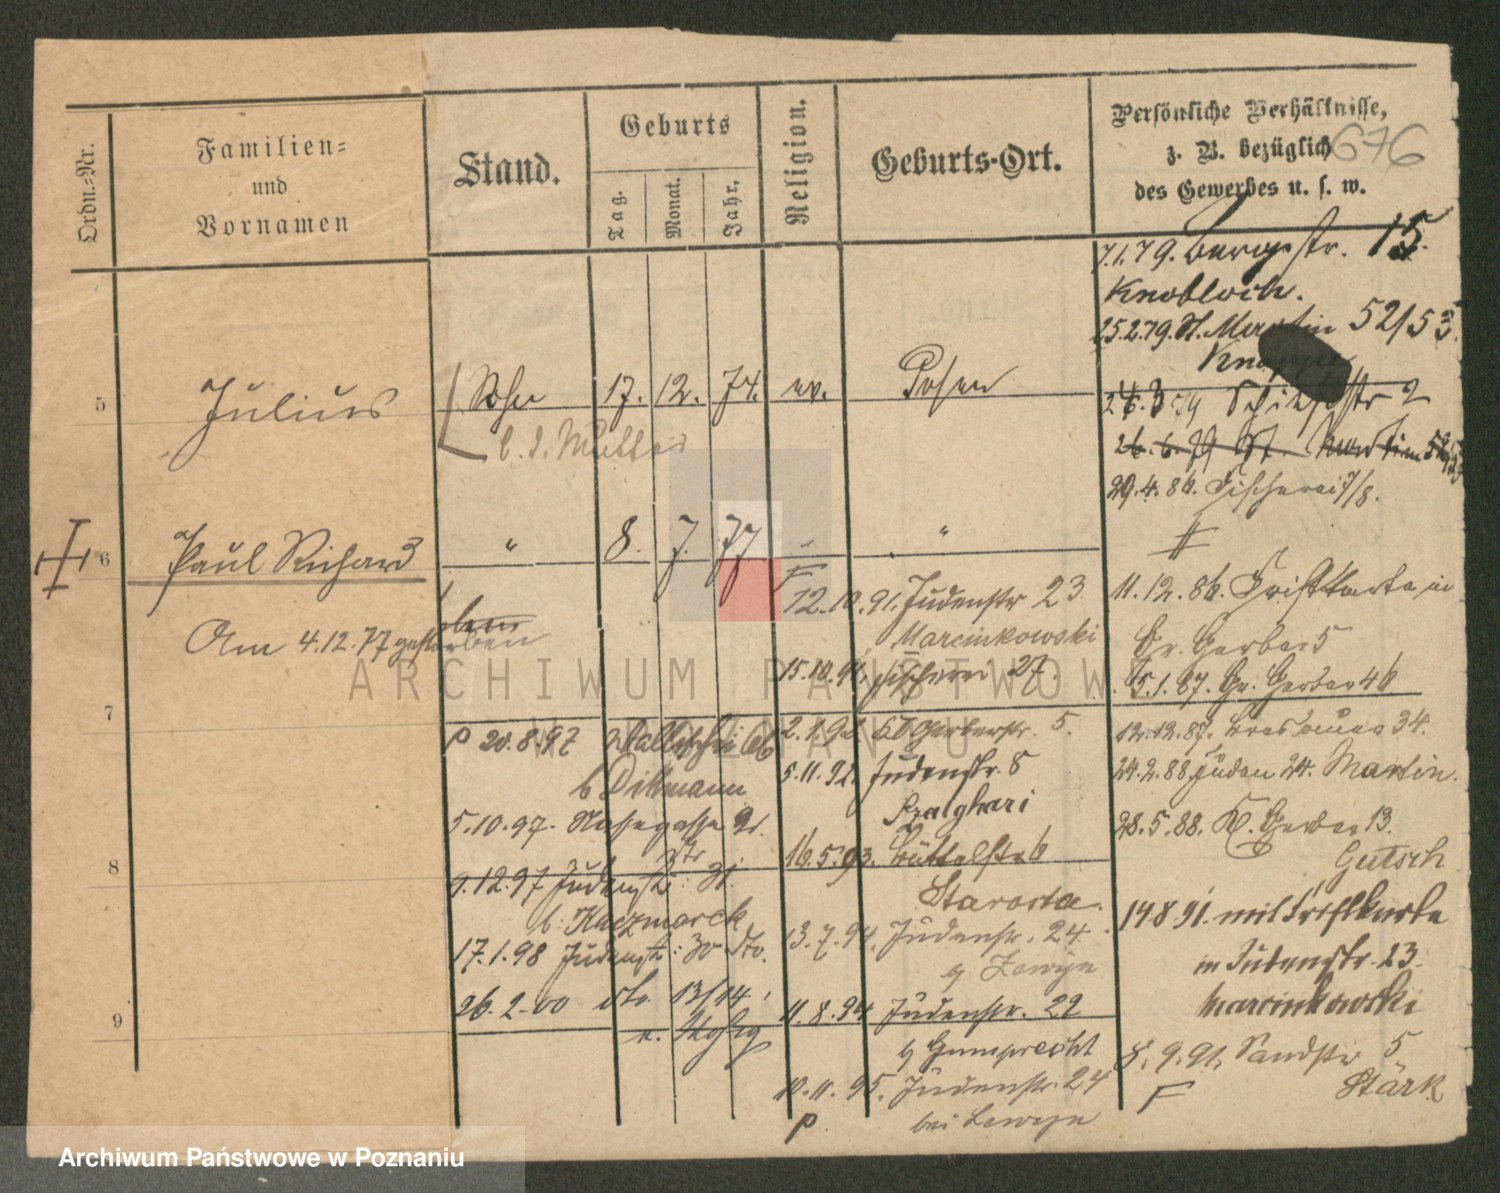 Ordn.-Nr.
Familien-
und
Vornamen
Stand.
Geburts
Tag.
Monat.
Jahr.
Religion.
Geburts-Ort.
Persönliche Verhältnisse,
z. B. bezüglich
des Gewerbes u. s. w.
676
5
Julius
Sohn
17. 12. 74. ev. Posen
b. d. Mutter
6
Paul Richard
" 8. 7. 77 " "
Am 4.12.77 gestorben
7
8
9
7.1.79. Bergstr. 15.
Knobloch.
25.2.79. St. Martin 52/53.
24.3.79 Schützstr 2
26.6.79 St. Martin 52/53
29.4.86. Fischerei 7/8.
11.12.86. in
Gr. Gerber 5
5.1.87. Gr. Gerber 46
12.12.87. 34.
24.2.88 Juden 24. Martin.
28.5.88. Kl. Gerber 13.
Gutsch
14 8 91. mit
in Judenstr. 23.
Marcinkowski
8. 9. 91. Sandstr 5
Stärk
F
F
12.10.91. Judenstr 23
Marcinkowski
15.10.91. Fischerei 27.
2.1.92 Gerberstr. 5.
5.11.92. Judenstr. 8
16.5.93. Büttelstr 6
Starosta.
13.7.94. Judenstr. 24
11.8.94 Judenstr. 22
Gumprecht
10.11.95. Judenstr. 24
P bei
P 20.8.97 Wallischei
b Dittmann
5.10.97. Nassegasse
12.97 Judenstr. 31.
b. Kaczmarek
17.1.98 Judenstr: 30 dto.
26.2.00 dto. 13/14
ARCHIWUM PAŃSTWOWE
W POZNANIU
Archiwum Państwowe w Poznaniu